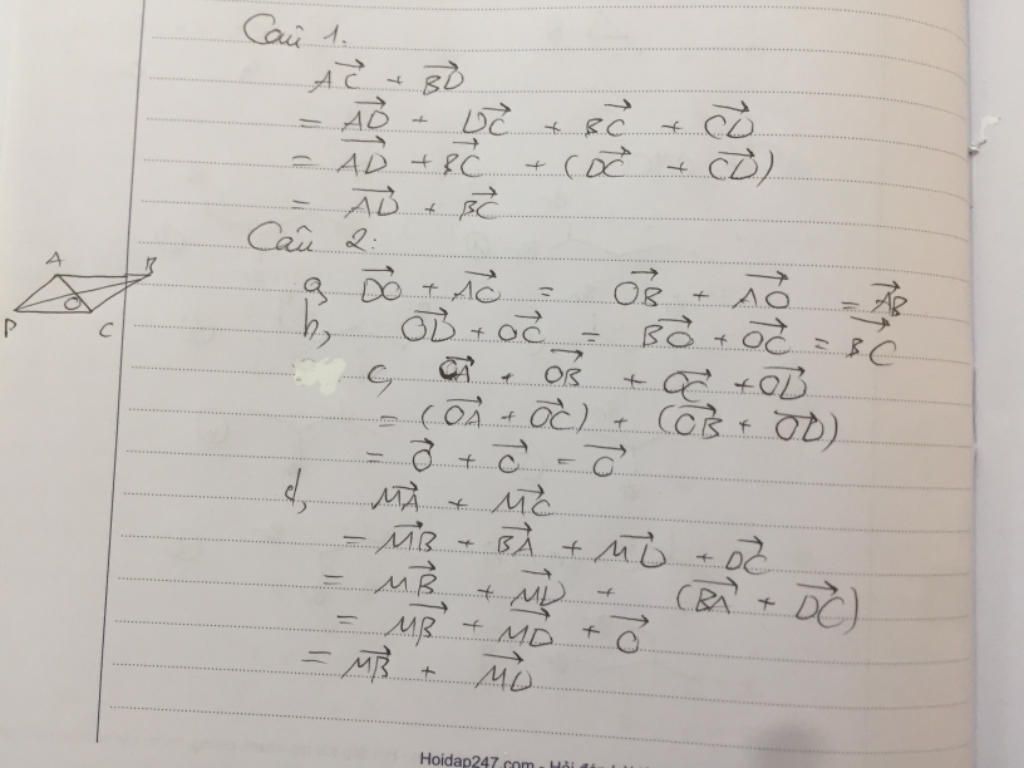 Câu 1.
$\overrightarrow{AC} + \overrightarrow{BD}$
$= \overrightarrow{AD} + \overrightarrow{DC} + \overrightarrow{BC} + \overrightarrow{CD}$
$= \overrightarrow{AD} + \overrightarrow{BC} + (\overrightarrow{DC} + \overrightarrow{CD})$
$= \overrightarrow{AD} + \overrightarrow{BC}$
Câu 2:
A B
D O C
a, $\overrightarrow{DO} + \overrightarrow{AO} = \overrightarrow{OB} + \overrightarrow{AO} = \overrightarrow{AB}$
b, $\overrightarrow{OD} + \overrightarrow{OC} = \overrightarrow{BO} + \overrightarrow{OC} = \overrightarrow{BC}$
c, $\overrightarrow{OA} + \overrightarrow{OB} + \overrightarrow{OC} + \overrightarrow{OD}$
$= (\overrightarrow{OA} + \overrightarrow{OC}) + (\overrightarrow{OB} + \overrightarrow{OD})$
$= \overrightarrow{O} + \overrightarrow{O} = \overrightarrow{O}$
d, $\overrightarrow{MA} + \overrightarrow{MC}$
$= \overrightarrow{MB} + \overrightarrow{BA} + \overrightarrow{MD} + \overrightarrow{DC}$
$= \overrightarrow{MB} + \overrightarrow{MD} + (\overrightarrow{BA} + \overrightarrow{DC})$
$= \overrightarrow{MB} + \overrightarrow{MD} + \overrightarrow{O}$
$= \overrightarrow{MB} + \overrightarrow{MD}$
Hoidap247.com - Hỏi đáp